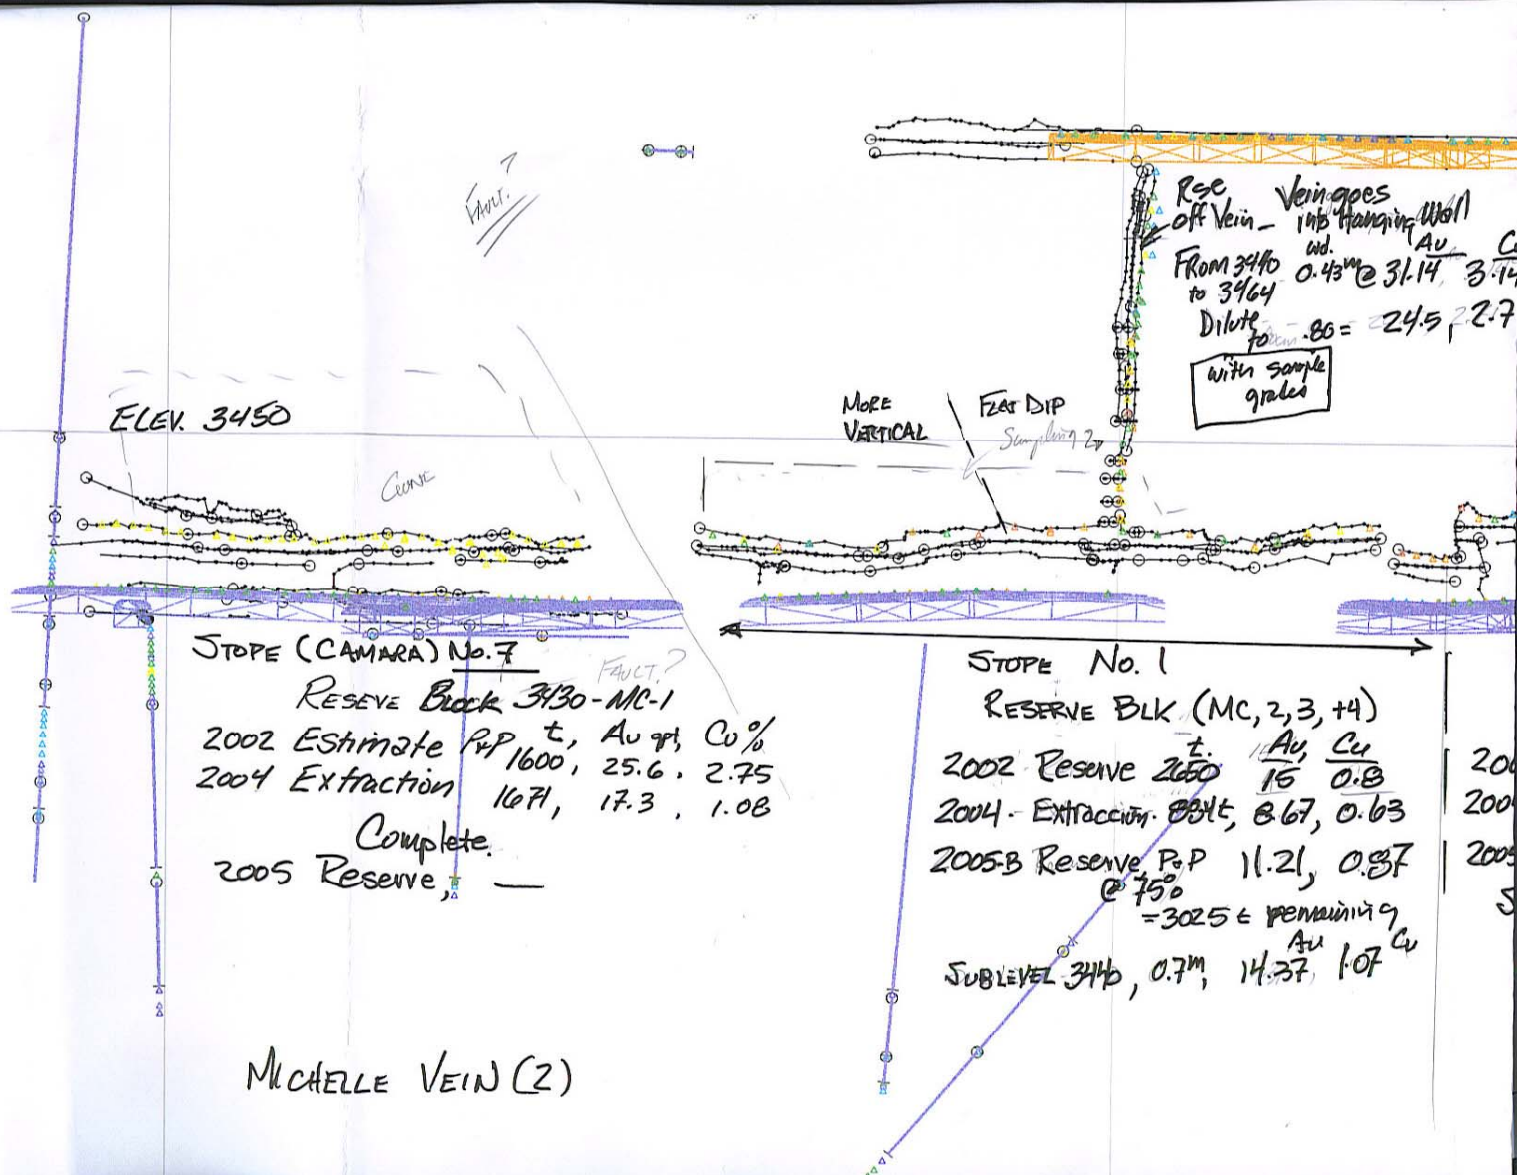 FAULT?
Rse Vein goes
off Vein - into Hanging Wall
wd. Au Cu
From 3440 0.43m @ 31.14, 3.14
to 3464
Dilute
to .80 = 24.5, 2.7
with sample
grades
ELEV. 3450
MORE
VERTICAL
FLAT DIP
Sampling ?
GONE
STOPE (CAMARA) No. 7
FAULT?
RESEVE Block 3430-MC-1
t, Au gpt, Cu%
2002 Estimate P+P 1600, 25.6, 2.75
2004 Extraction 1671, 17.3, 1.08
Complete.
2005 Reserve, —
STOPE No. 1
RESERVE BLK (MC, 2, 3, +4)
t. Au, Cu
2002 Reserve 2650 15 0.8
2004 - Extraccion 884t, 8.67, 0.63
2005-B Reserve P+P 11.21, 0.87
@ 75%
= 3025 t remaining
Au Cu
SUBLEVEL 3440, 0.7m, 14.37 1.07
200
200
2005
MICHELLE VEIN (2)